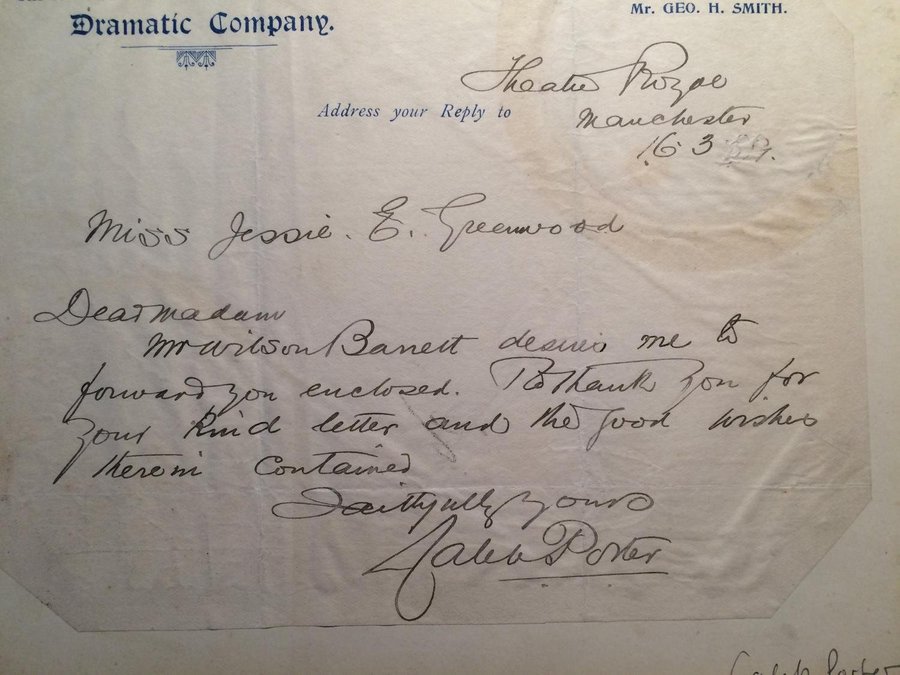 Mr. GEO. H. SMITH.
Dramatic Company.
Theatre Royal
Address your Reply to
Manchester
16 3
Miss Jessie. E. Greenwood
Dear Madam
Mr Wilson Barrett desires me to
forward you enclosed. & to thank you for
your kind letter and the good wishes
therein contained
Faithfully yours
Caleb Porter
Caleb Porter